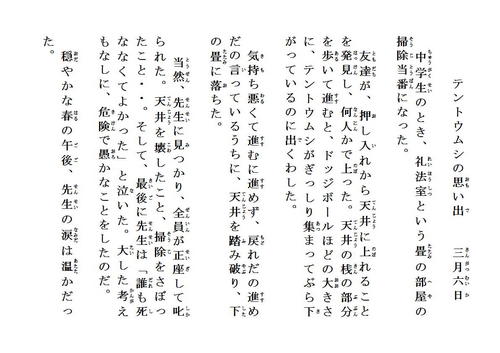 テントウムシの思い出　三月六日
中学生のとき、礼法室という畳の部屋の
掃除当番になった。
友達が、押し入れから天井に上れること
を発見し、何人かで上った。天井の桟の部分
を歩いて進むと、ドッジボールほどの大きさ
に、テントウムシがぎっしり集まってぶら下
がっているのに出くわした。
気持ち悪くて進むに進めず、戻れだの進め
だの言っているうちに、天井を踏み破り、下
の畳に落ちた。
当然、先生に見つかり、全員が正座して叱
られた。天井を壊したこと、掃除をさぼっ
たこと・・。そして、最後に先生は「誰も死
ななくてよかった」と泣いた。大した考え
もなしに、危険で愚かなことをしたのだ。
穏やかな春の午後、先生の涙は温かだっ
た。